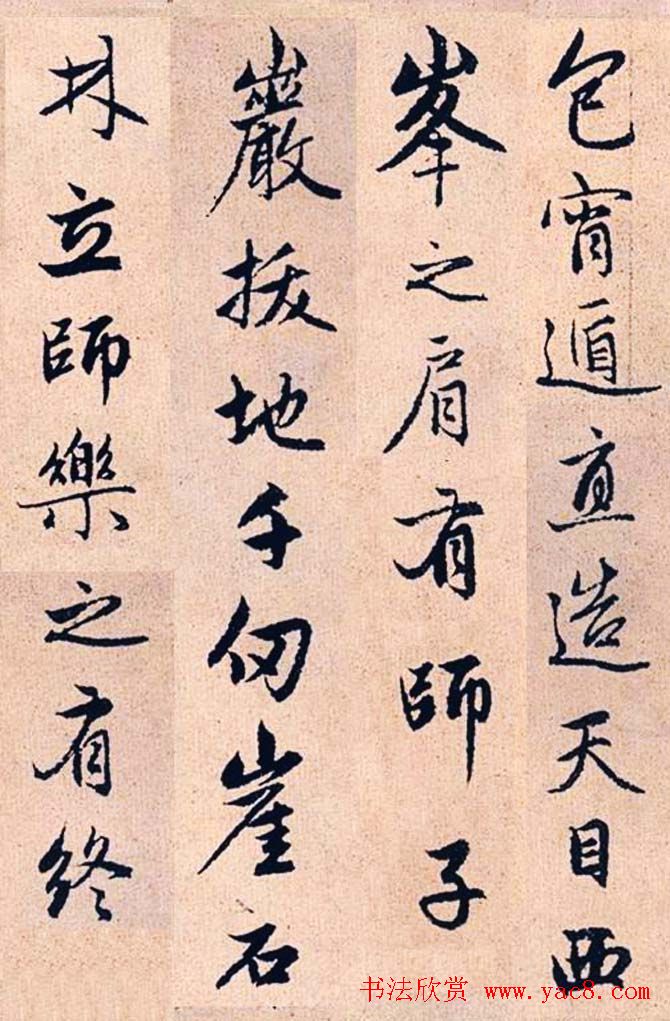 包宵遁直造天目西
峯之肩有師子
巖拔地千仞崖石
林立師樂之有終
书法欣赏 www.yac8.com